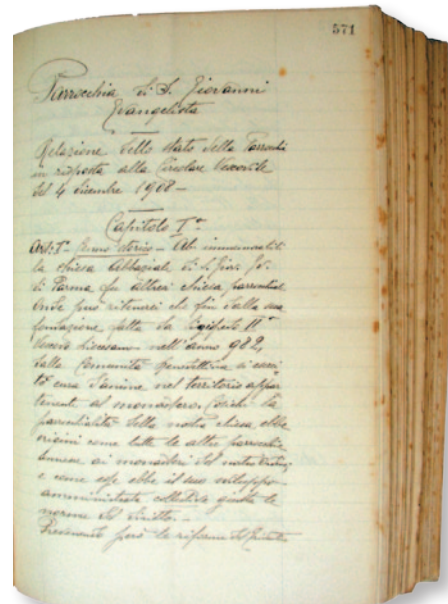 571
Parrocchia di S. Giovanni
Evangelista
Relazione dello stato della Parrocchia
in risposta alla Circolare Vescovile
del 4 dicembre 1908 –
Capitolo I°
Art: I° Cenno storico – Ab immemorabili
la chiesa Abbaziale di S. Giov. Ev.
di Parma fu altresì chiesa parrocchiale
Onde può ritenersi che fin dalla sua
fondazione fatta da Sigifredo II°
Vescovo diocesano nell'anno 982,
dalla Comunità Benedittina si eserci
tò cura d'anime nel territorio appar
tenente al monastero. Cosichè la
parrocchialità della nostra chiesa ebbe
origini come tutte le altre parrocchie
annesse ai monasteri del nostro Ordine,
e come esse ebbe il suo sviluppo
amministrate collettiva giusta le
norme del diritto. –
però le riforme del